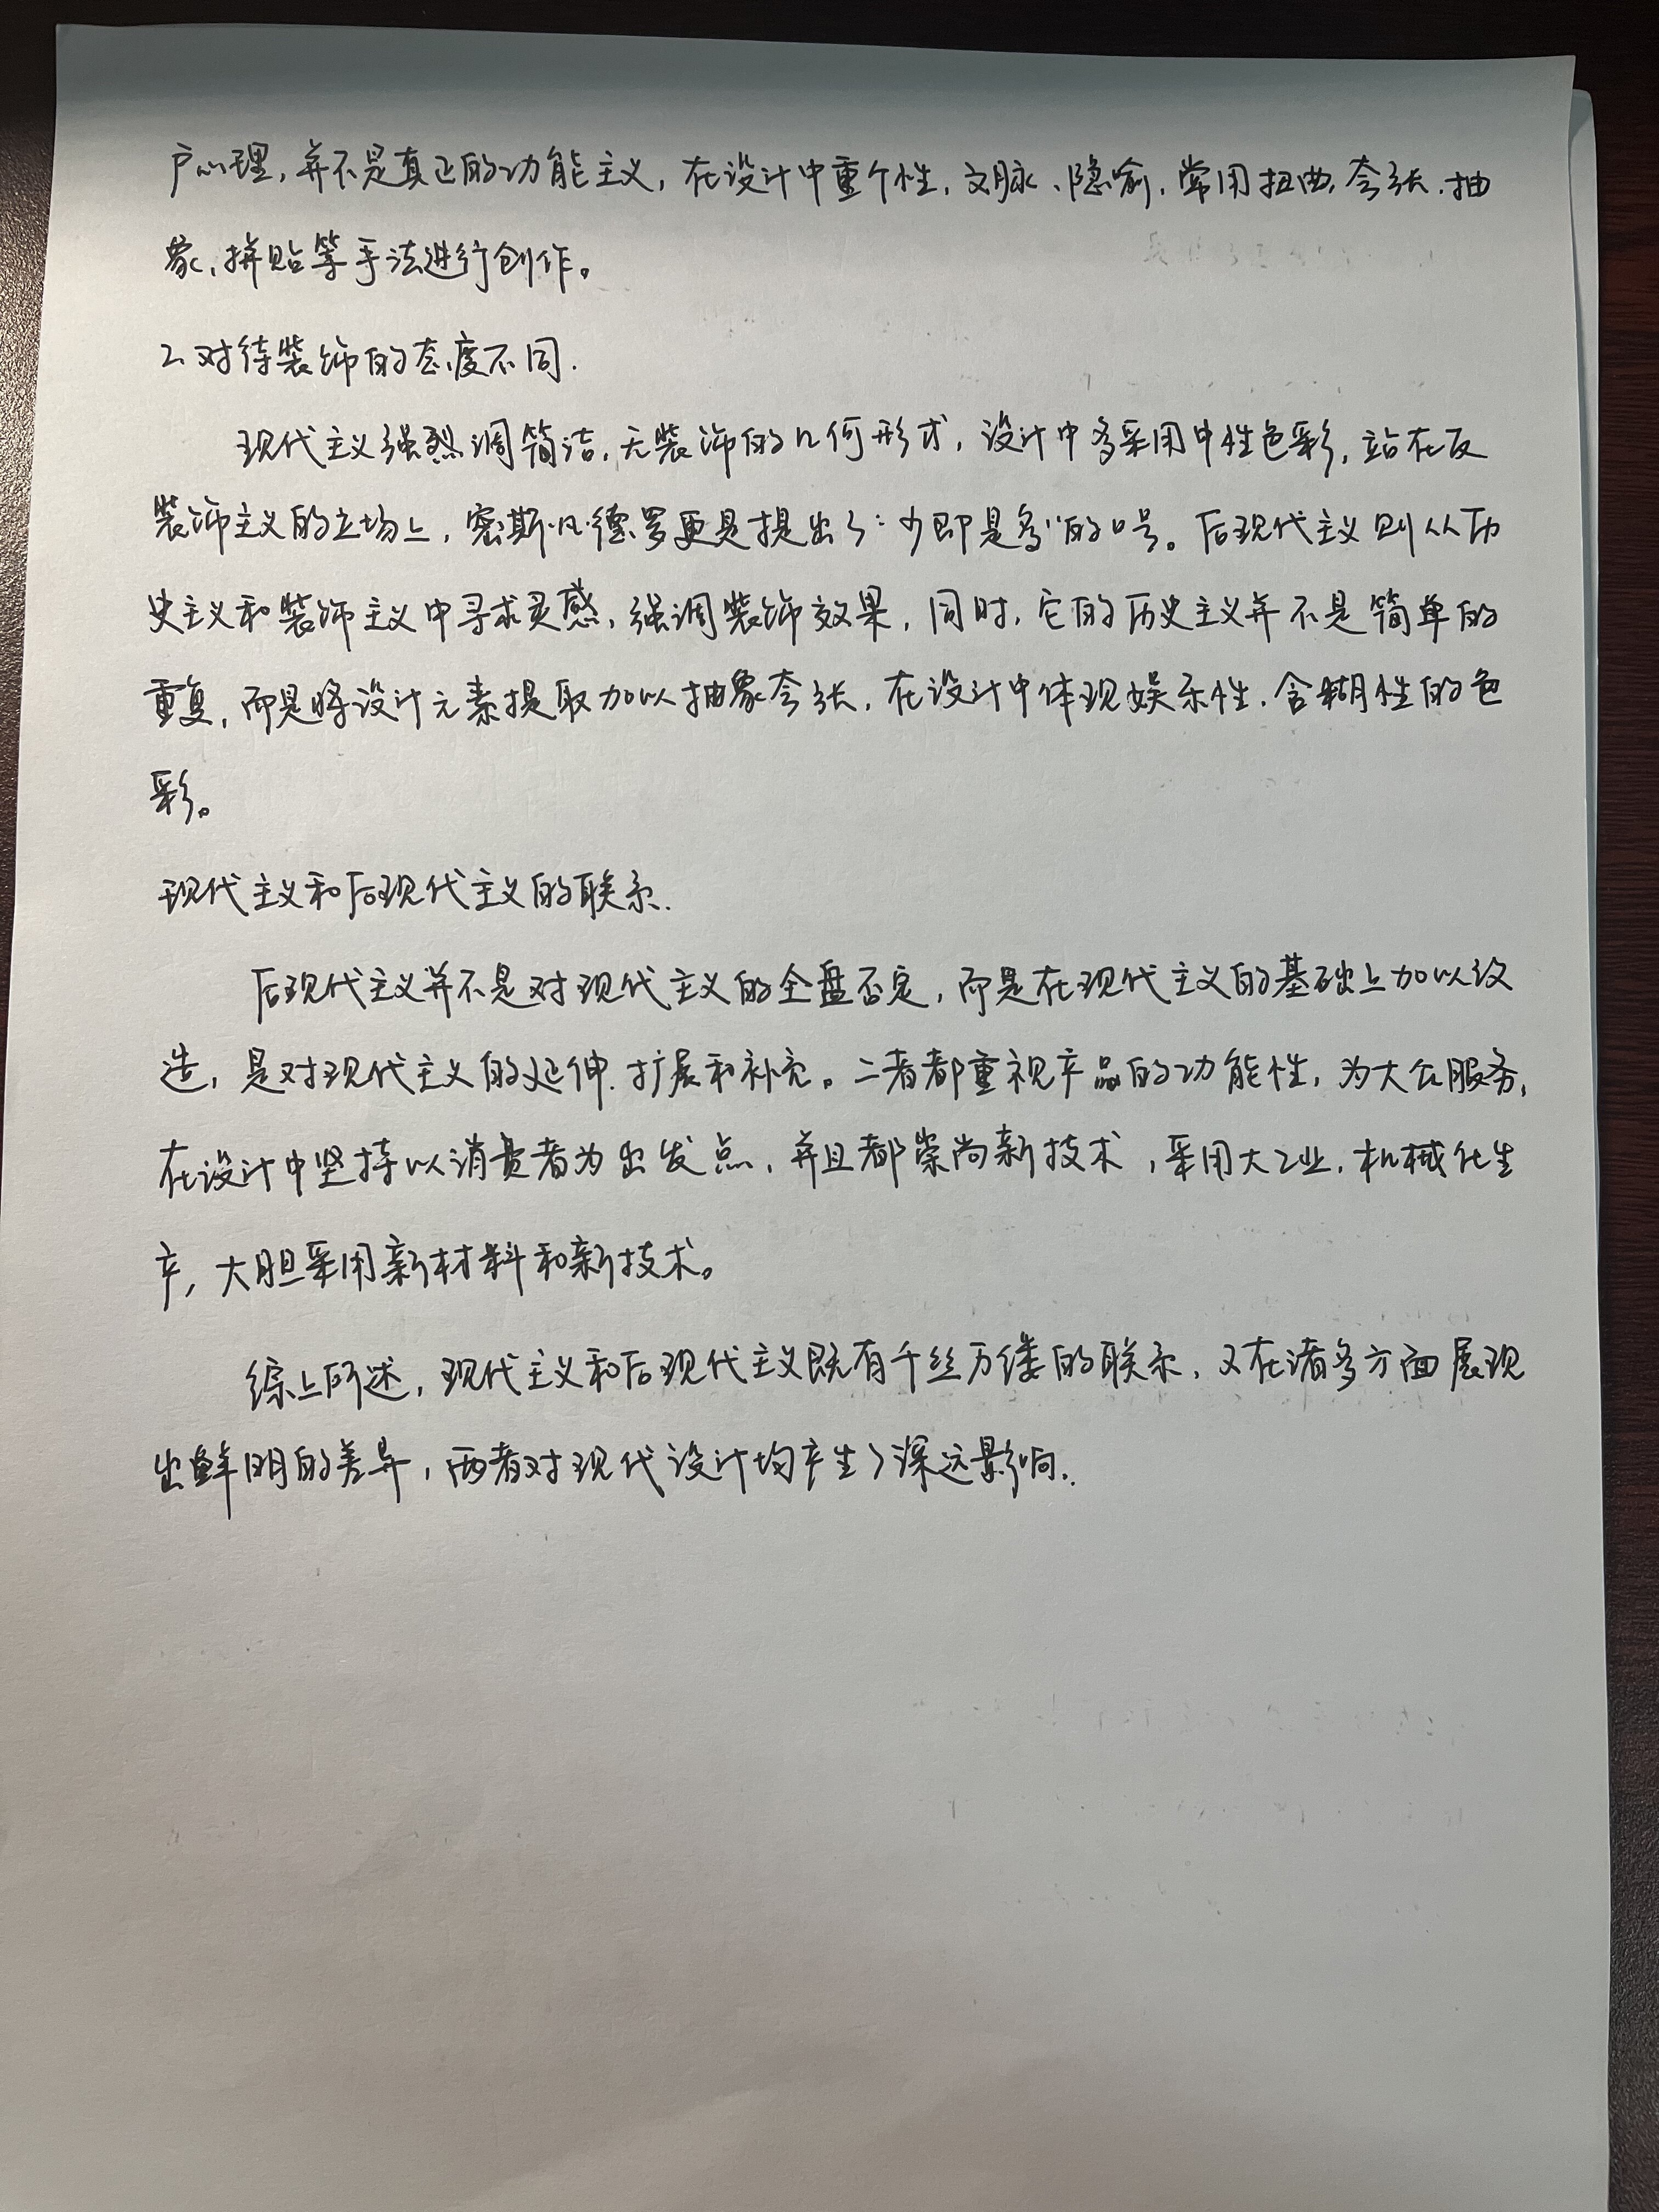 户心理，并不是真正的功能主义，在设计中重个性，文脉、隐喻，常用扭曲，夸张、抽
象、拼贴等手法进行创作。
2、对待装饰的态度不同．
现代主义强烈调简洁，无装饰的几何形式，设计中多采用中性色彩，站在反
装饰主义的立场上，密斯·凡·德·罗更是提出了“少即是多”的口号。后现代主义则从历
史主义和装饰主义中寻求灵感，强调装饰效果，同时，它的历史主义并不是简单的
重复，而是将设计元素提取加以抽象夸张，在设计中体现娱乐性、含糊性的色
彩。
现代主义和后现代主义的联系．
后现代主义并不是对现代主义的全盘否定，而是在现代主义的基础上加以改
造，是对现代主义的延伸、扩展和补充。二者都重视产品的功能性，为大众服务，
在设计中坚持以消费者为出发点，并且都崇尚新技术，采用大工业，机械化生
产，大胆采用新材料和新技术。
综上所述，现代主义和后现代主义既有千丝万缕的联系，又在诸多方面展现
出鲜明的差异，两者对现代设计均产生了深远影响．